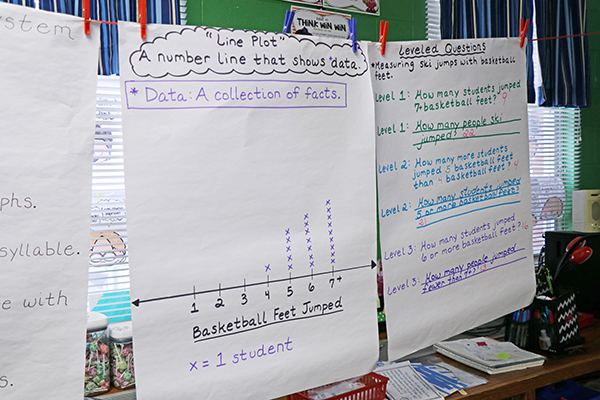 system
phs.
syllable.
e with
s.
"Line Plot"
A number line that shows data.
* Data: A collection of facts.
1 2 3 4 5 6 7+
Basketball Feet Jumped
x = 1 student
THINK WIN WIN
Leveled Questions
*Measuring ski jumps with basketball
feet.
Level 1: How many students jumped
7+ basketball feet? 9
Level 1: How many people ski
jumped? 22
Level 2: How many more students
jumped 5 basketball feet
than 4 basketball feet? 4
Level 2: How many students jumped
5 or more basketball feet?
21
Level 3: How many students jumped
6 or more basketball feet? 16
Level 3: How many people jumped
fewer than